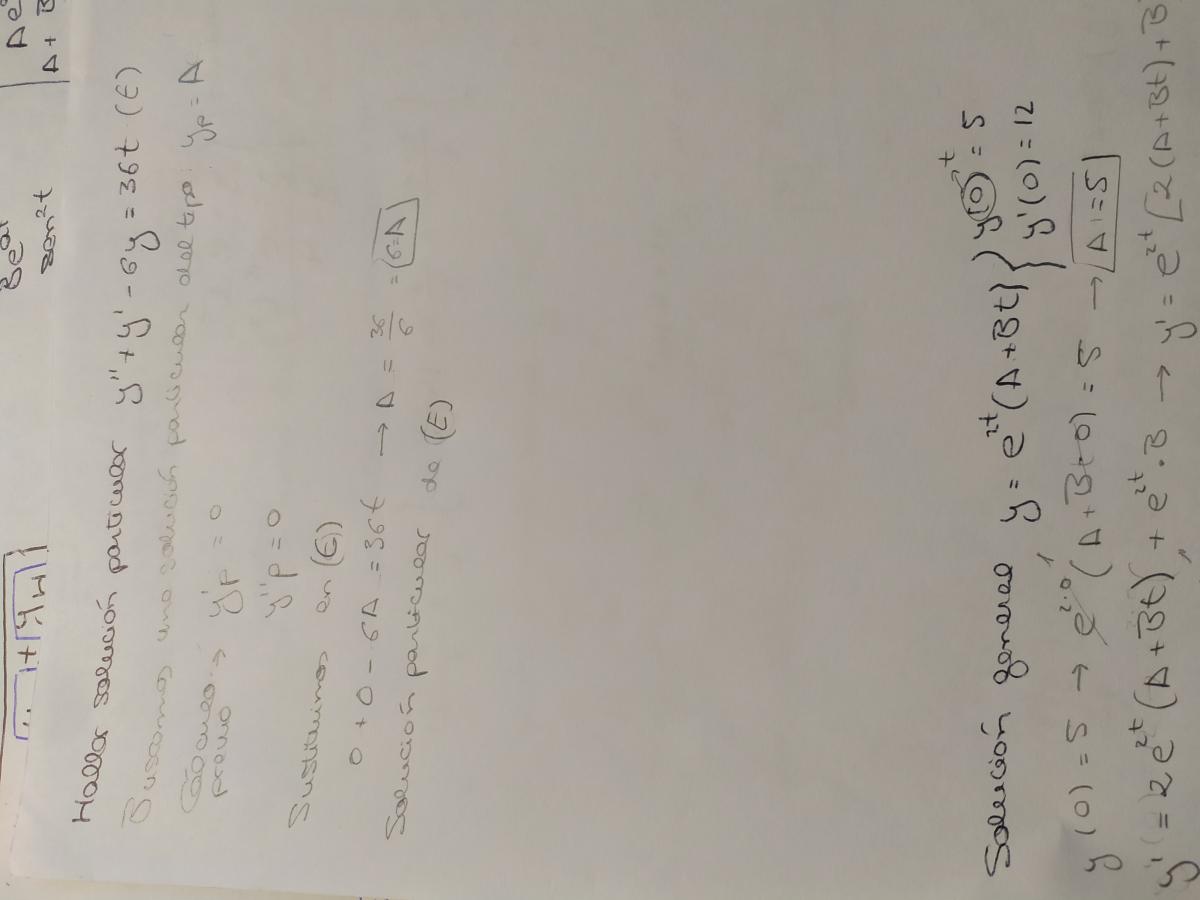 Be^at
sen2t
A+B
+ yh
Hallar solución particular y'' + y' - 6y = 36t (E)
Buscamos una solución particular del tipo: yp = A
Cálculo → y'p = 0
previo
y''p = 0
Sustituimos en (E)
0 + 0 - 6A = 36t → A = 36/6 = 6=A
Solución particular de (E)
Solución general y = e^2t (A+Bt) } y(0) = 5
t
y'(0) = 12
y(0) = 5 → e^2·0 (A+B·0) = 5 → A = 5
1
y' = 2e^2t (A+Bt) + e^2t · B → y' = e^2t [2(A+Bt)+B